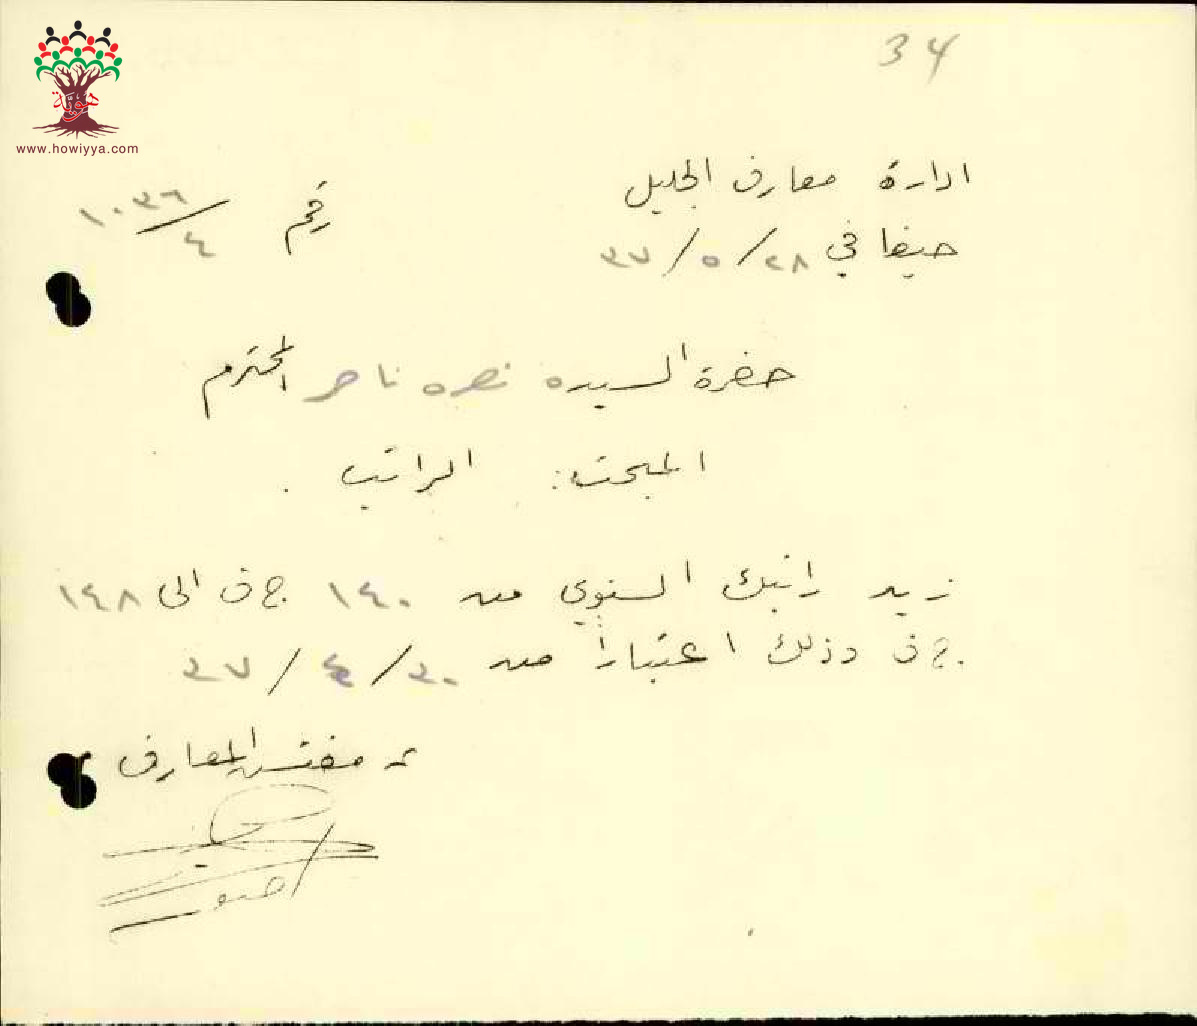 34
هوية
www.howiyya.com
ادارة معارف الجليل
رقم ١٠٣٦/٤
حيفا في ٢٨/٥/٣٧
حضرة السيده نصره ناصر المحترم
المبحث: الراتب.
زيد راتبك السنوي من ١٤٠ ج ف الى ١٤٨
ج ف وذلك اعتباراً من ٣٠/٤/٣٧
مفتش المعارف